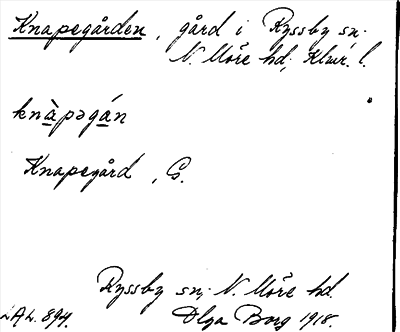 Knapegården, gård i Ryssby sn.
N. Möre hd, Klmr. l.
knàpəgán
Knapegård, G.
Ryssby sn, N. Möre hd.
LAL. 894. Olga Borg 1918.